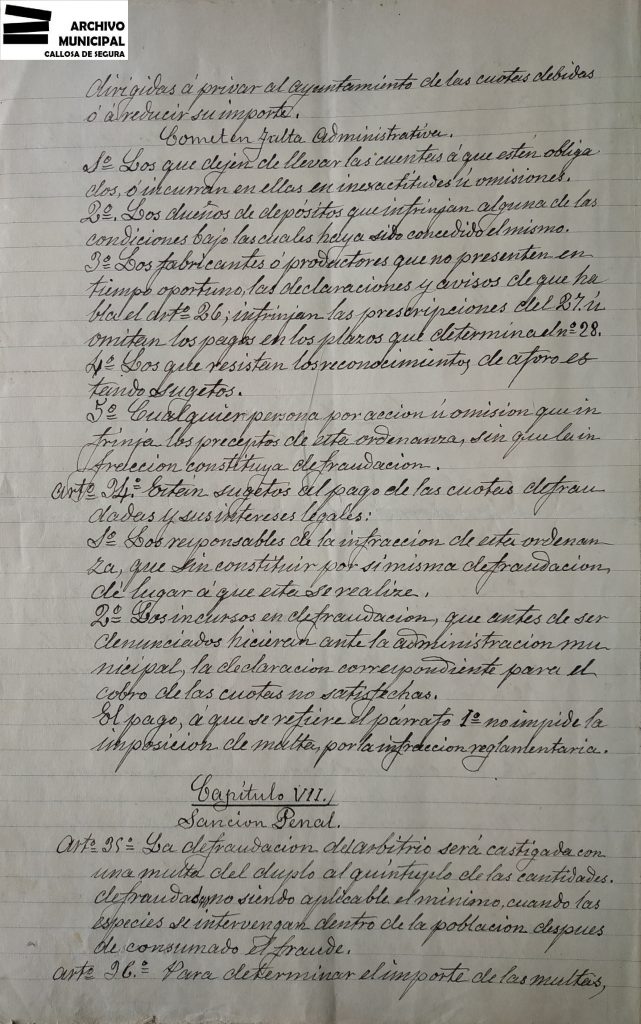 ARCHIVO
MUNICIPAL
CALLOSA DE SEGURA
dirigidas á privar al ayuntamiento de las cuotas debidas
ó á reducir su importe.
Cometen falta administrativa.
1º Los que dejen de llevar las cuentas á que estén obliga
dos, ó incurran en ellas en inexactitudes ú omisiones.
2º. Los dueños de depósitos que infrinjan alguna de las
condiciones bajo las cuales haya sido concedido el mismo.
3º Los fabricantes ó productores que no presenten en
tiempo oportuno, las declaraciones y avisos de que ha
bla el artº 26; infrinjan las prescripciones del 27. ú
omitan los pagos en los plazos que determina el nº 28.
4º Los que resistan los reconocimientos de aforo es
tando sugetos.
5º Cualquier persona por accion ú omision que in
frinja los preceptos de esta ordenanza, sin que la in
fraccion constituya defraudacion.
artº 34.º Están sugetos al pago de las cuotas defrau
dadas y sus intereses legales:
1º Los responsables de la infraccion de esta ordenan
za, que sin constituir por si misma defraudacion,
dé lugar á que esta se realize.
2º Los incursos en defraudacion, que antes de ser
denunciados hicieran ante la administracion mu-
nicipal, la declaracion correspondiente para el
cobro de las cuotas no satisfechas.
El pago, á que se refiere el párrafo 1º no impide la
imposicion de multa, por la infraccion reglamentaria.
Capítulo VII.
Sancion Penal.
Artº 35º La defraudacion del arbitrio será castigada con
una multa del duplo al quíntuplo de las cantidades.
defraudadas, no siendo aplicable el mínimo, cuando las
especies se intervengan dentro de la poblacion despues
de consumado el fraude.
artº 36.º Para determinar el importe de las multas,